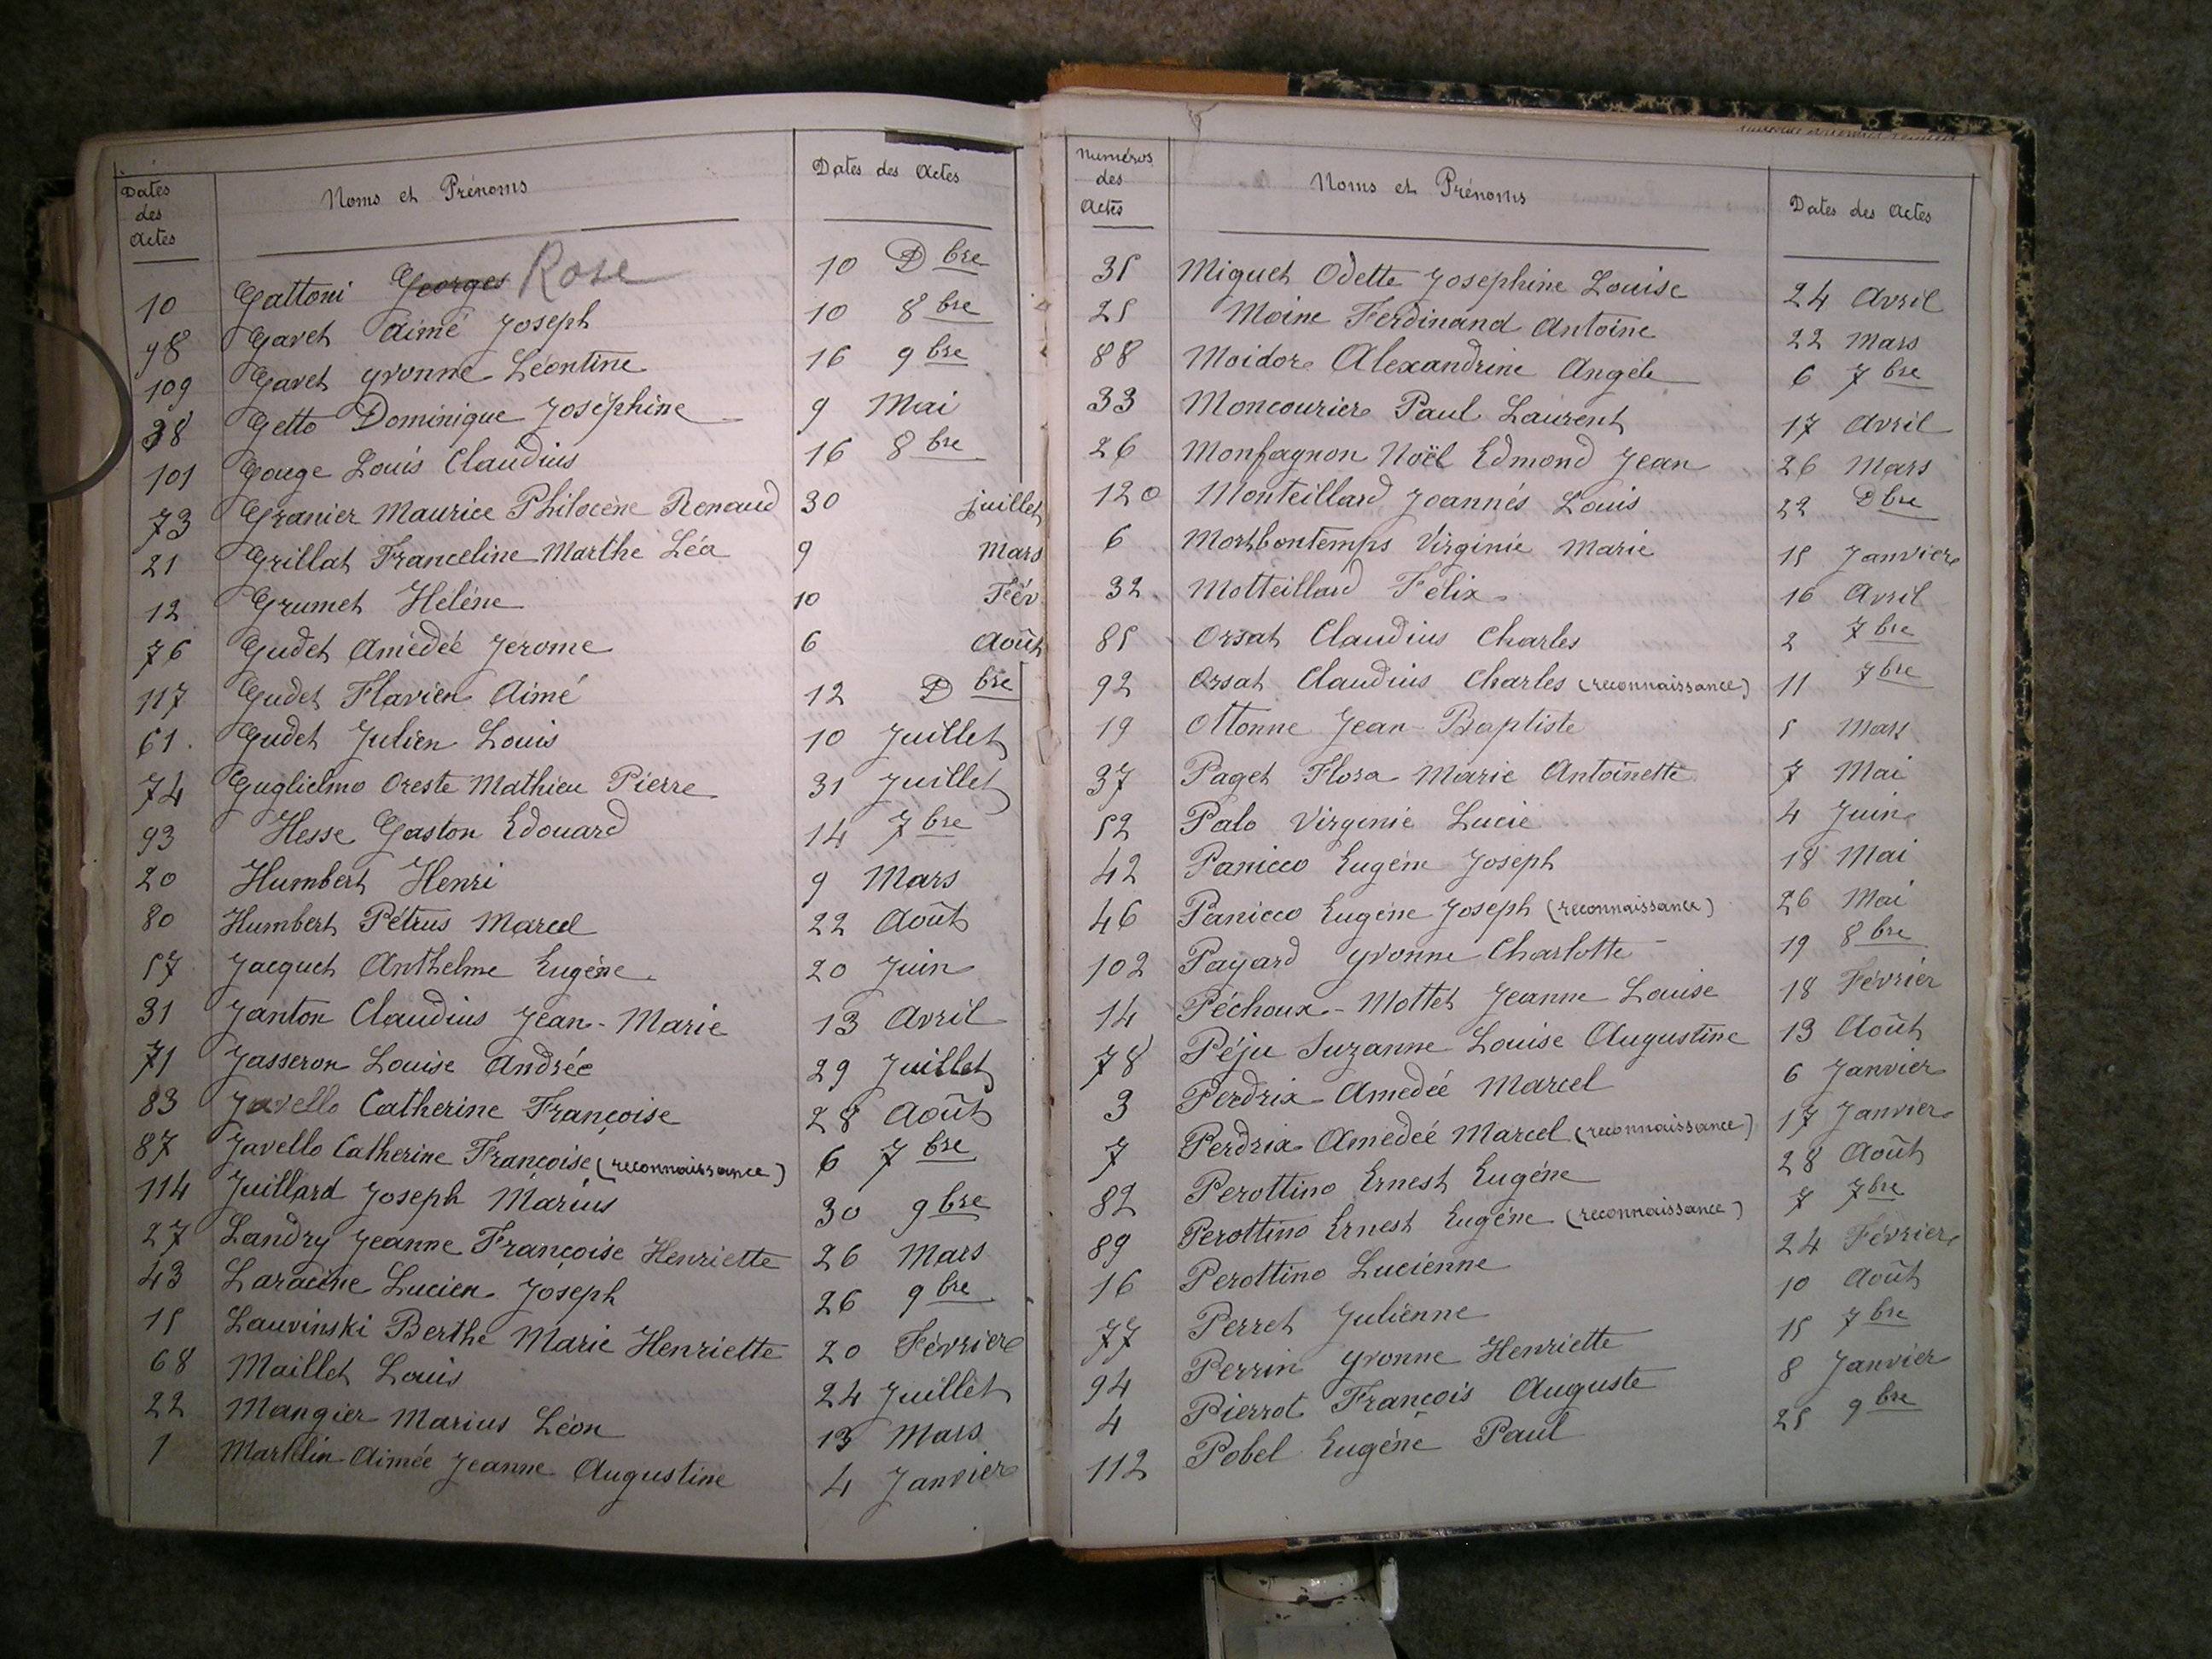 Dates des Actes Noms et Prénoms Dates des Actes
10 Gattoni Georges Rose 10 Dbre
98 Gavet Aimé Joseph 10 8bre
109 Gavet Yvonne Léontine 16 9bre
38 Getto Dominique Joséphine 9 Mai
101 Gouge Louis Claudius 16 8bre
73 Granier Maurice Philocène Renaud 30 juillet
21 Grillat Franceline Marthe Léa 9 Mars
12 Grumet Hélène 10 Fév
76 Gudet Amédéé Jerome 6 Août
117 Gudet Flavien Aimé 12 Dbre
61. Gudet Julien Louis 10 Juillet
74 Guglielmo Oreste Mathieu Pierre 31 Juillet
93 Hesse Gaston Edouard 14 7bre
20 Humbert Henri 9 Mars
80 Humbert Pétrus Marcel 22 Août
57 Jacquet Anthelme Eugène 20 Juin
31 Janton Claudius Jean-Marie 13 Avril
71 Jasseron Louise Andrée 29 Juillet
83 Javello Catherine Françoise 28 Août
87 Javello Catherine Françoise (reconnaissance) 6 7bre
114 Juillard Joseph Marius 30 9bre
27 Landry Jeanne Françoise Henriette 26 Mars
43 Laracine Lucien Joseph 26 9bre
15 Lauvinski Berthe Marie Henriette 20 Février
68 Maillet Louis 24 Juillet
22 Mangier Marius Léon 13 Mars
1 Marklin Aimée Jeanne Augustine 4 Janvier
Numéros des Actes Noms et Prénoms Dates des Actes
35 Miguet Odette Josephine Louise 24 Avril
25 Moine Ferdinand Antoine 22 Mars
88 Moidor Alexandrine Angèle 6 7bre
33 Moncourier Paul Laurent 17 Avril
26 Monfagnon Noël Edmond Jean 26 Mars
120 Monteillard Joannés Louis 22 Dbre
6 Mortbontemps Virginie Marie 15 Janvier
32. Motteillard Félix 16 Avril
85 Orsat Claudius Charles 2 7bre
92 Orsat Claudius Charles (reconnaissance) 11 7bre
19 Ottonne Jean-Baptiste 5 Mars
37 Paget Flora Marie Antoinette 7 Mai
52 Palo Virginie Lucie 4 Juin
42 Panicco Eugène Joseph 18 Mai
46 Panicco Eugène Joseph (reconnaissance) 26 Mai
102 Payard Yvonne Charlotte 19 8bre
14 Péchoux-Mottet Jeanne Louise 18 Février
78 Péju Suzanne Louise Augustine 13 Août
3 Perdrix Amedéé Marcel 6 Janvier
7 Perdrix Amedéé Marcel (reconnaissance) 17 Janvier
82 Perottino Ernest Eugène 28 Août
89 Perottino Ernest Eugène (reconnaissance) 7 7bre
16 Perottino Lucienne 24 Février
77 Perret Julienne 10 Août
94 Perrin Yvonne Henriette 15 7bre
4 Pierrot François Auguste 8 Janvier
112 Pobel Eugène Paul 25 9bre